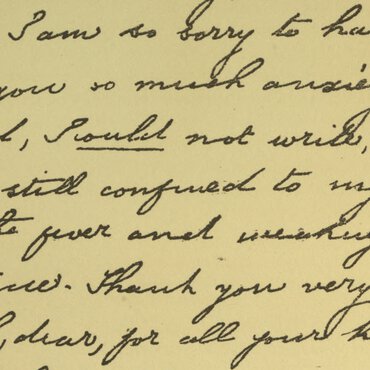 I am so sorry to ha
you so much anxie
d, I could not write,
still confined to my
fever and weakn
Thank you very
dear, for all your k